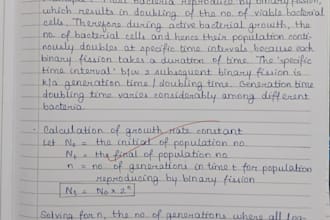 Principle : Most bacteria reproduce by binary fission,
which results in doubling of the no. of viable bacterial
cells. Therefore during active bacterial growth, the
no. of bacterial cells and hence their population conti-
nously doubles at specific time intervals because each
binary fission takes a duration of time. The 'specific
time interval' b/w 2 subsequent binary fission is
k/a generation time / doubling time. Generation time
doubling time varies considerably among different
bacteria.
• Calculation of growth rate constant
Let N₀ = the initial of population no.
Nₜ = the final of population no
n = no of generations in time t for population
reproducing by binary fission
Nₜ = N₀ × 2ⁿ
Solving for n, the no. of generations where all log-